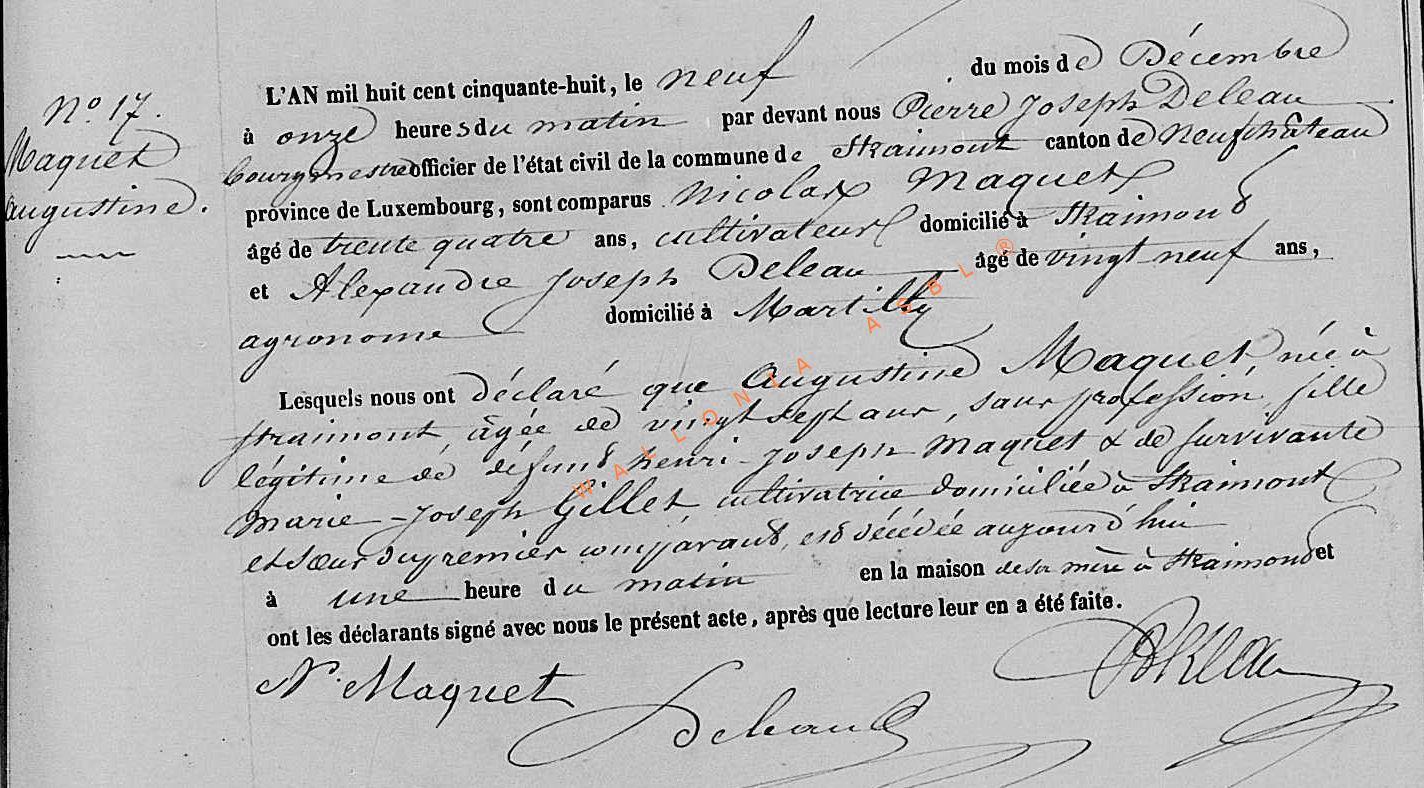 No 17.
Maquet
augustine.
L'AN mil huit cent cinquante-huit, le neuf du mois de Décembre
à onze heures du matin par devant nous Pierre Joseph Deleau
bourgmestre officier de l'état civil de la commune de Straimont canton de Neufchâteau
province de Luxembourg, sont comparus Nicolas Maquet
âgé de trente quatre ans, cultivateur domicilié à Straimont
et Alexandre Joseph Deleau âgé de vingt neuf ans,
agronome domicilié à Martilly
Lesquels nous ont déclaré que Augustine Maquet née à
straimont, âgée de vingt sept ans, sans profession, fille
légitime de défunt henri-Joseph Maquet & de survivante
Marie-Joseph Gillet cultivatrice domiciliée à Straimont
et sœur du premier comparant, est décédée aujourd'hui
à une heure du matin en la maison de sa mère à Straimont et
ont les déclarants signé avec nous le présent acte, après que lecture leur en a été faite.
N. Maquet
Deleau
WALLONIA ASBL ®